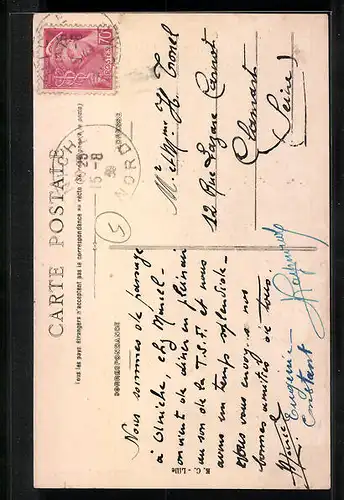 CARTE POSTALE
Tous les pays étrangers n'acceptent pas la correspondance au recto (Se renseigner à la poste)
CORRESPONDANCE
Nous sommes de passage
à Olniche, chez Marcel -
on vient de dîner en plein air
au son de la T.S.F. et nous
avons un temps splendide -
Nous vous envoyons nos
bonnes amitiés de tous.
Marcel
Eugénie
Constant
Raymonde
Mr et Mme H.
12 Rue Lazare Carnot
Clamart
(Seine)
70
15-8
39
NORD
5
R. C. - Lille